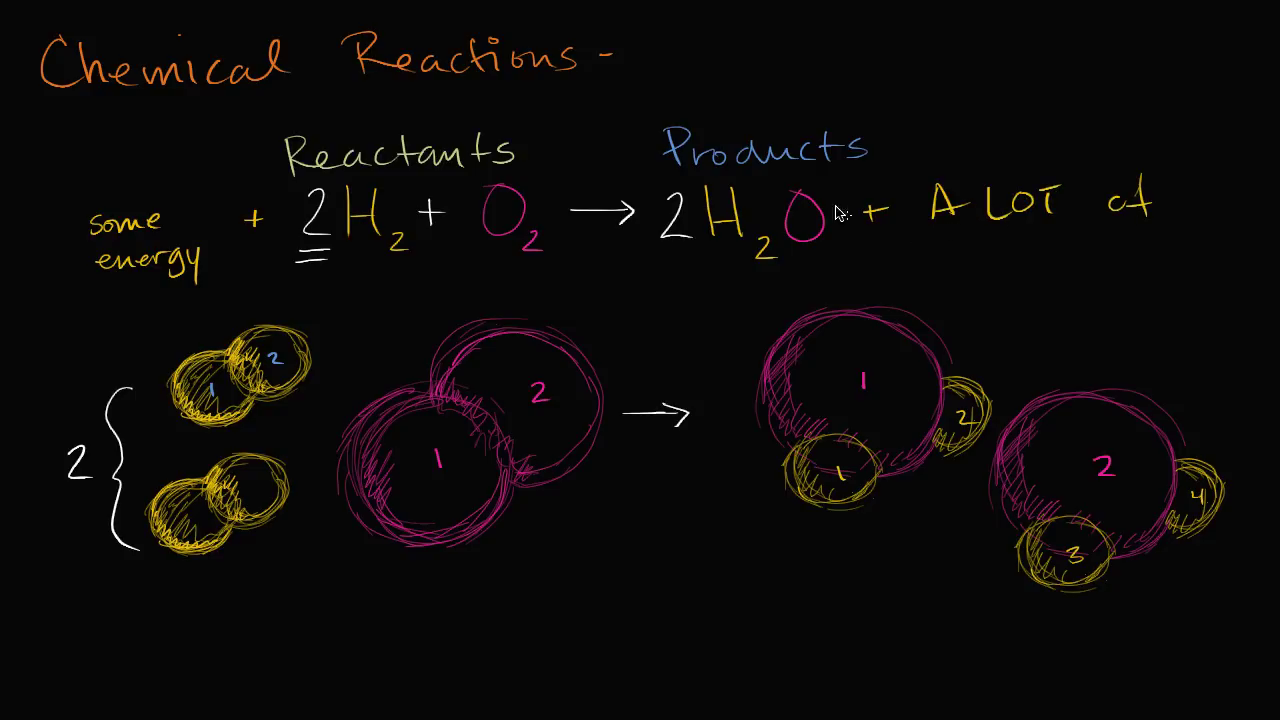 Chemical Reactions -
Reactants Products
some energy + 2H₂ + O₂ → 2H₂O + A LOT of
2
1 2
1 2
→
1 1 2
2 3 4